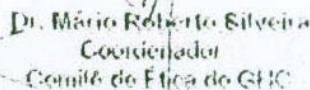 Dr. Mário Roberto Silveira
Coordenador
Comitê de Ética do GHC